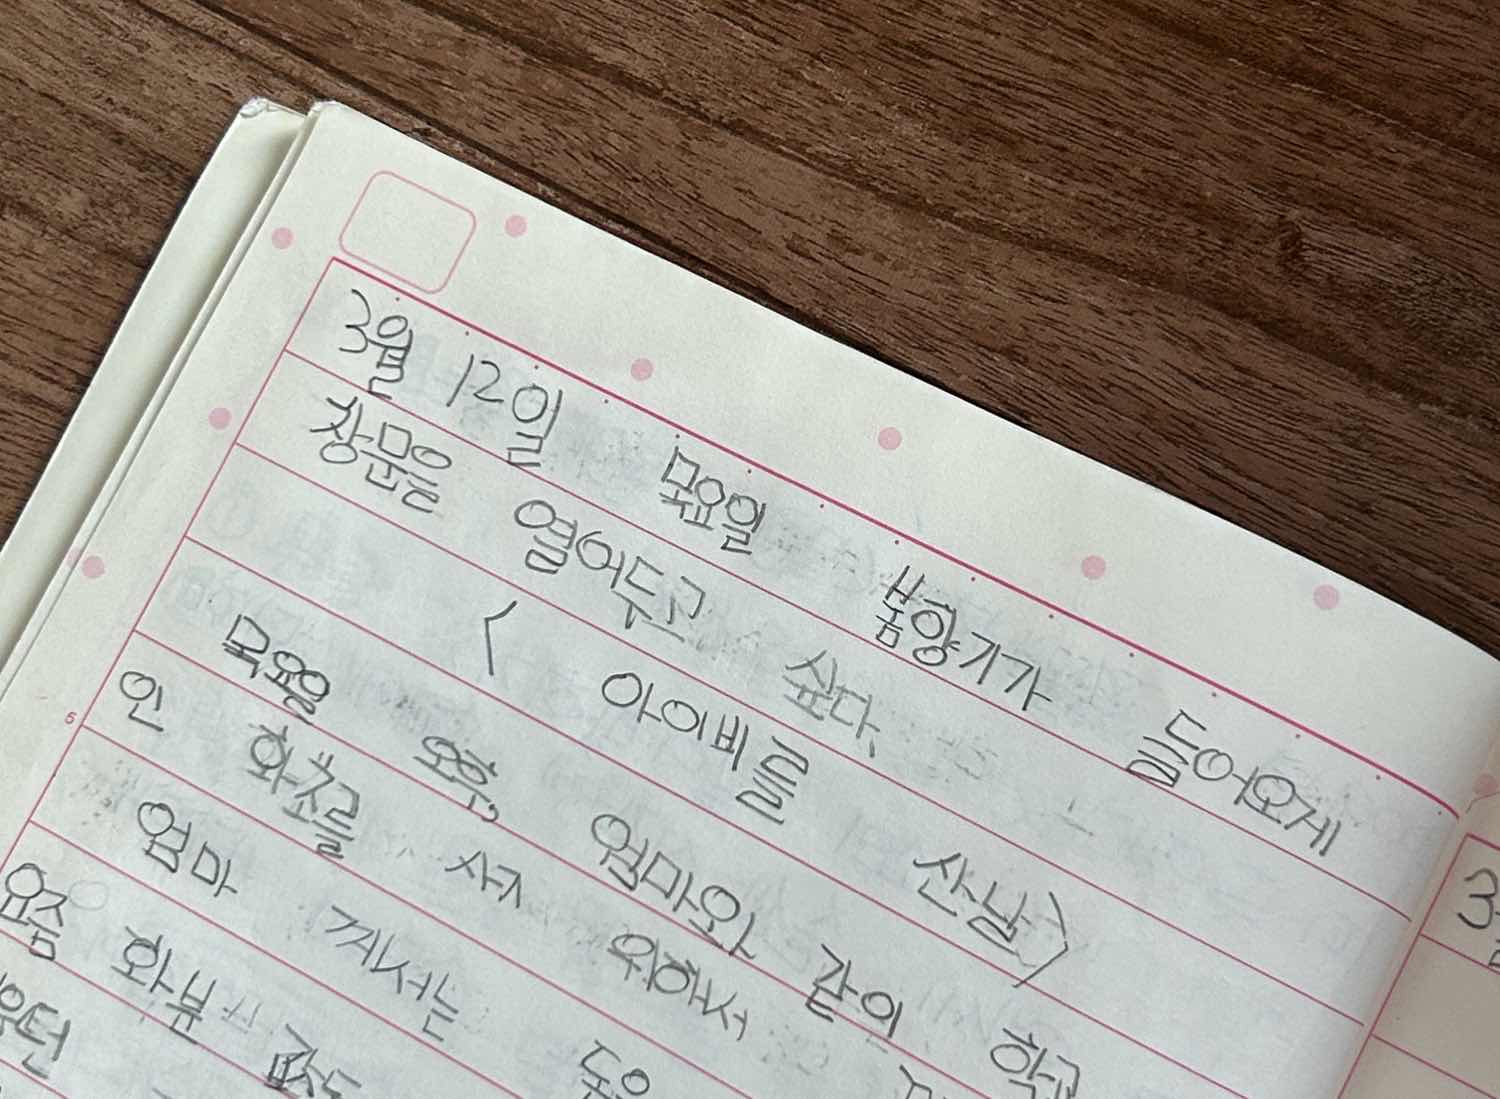 3월 12일 목요일 봄향기가 들어오게
창문을 열어두고 싶다.
< 아이비를 산날>
목요일 오후, 엄마와 같이 학교
인 화초를 사기 위해서
엄마 께서는
요즘 화분
3
6